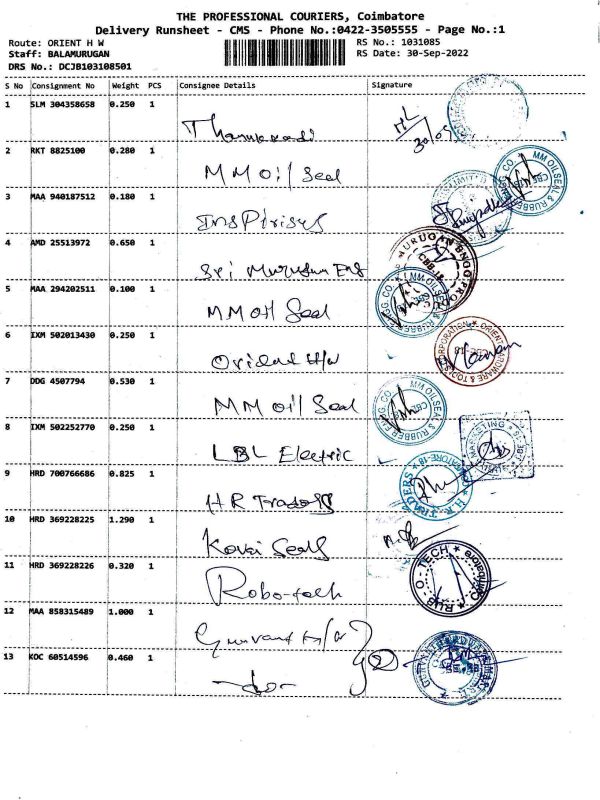 THE PROFESSIONAL COURIERS, Coimbatore
Delivery Runsheet - CMS - Phone No.:0422-3505555 - Page No.:1
Route: ORIENT H W RS No.: 1031085
Staff: BALAMURUGAN RS Date: 30-Sep-2022
DRS No.: DCJB103108501
S No Consignment No Weight PCS Consignee Details Signature
1 SLM 304358658 0.250 1
30/09
2 RKT 8825100 0.280 1 MM Oil Seal
MM OILSEAL & RUBBER ENGG. CO.
3 MAA 940187512 0.180 1
4 AMD 25513972 0.650 1 Sri Murugan Eng
MURUGAN ENGG PRODU
5 MAA 294202511 0.100 1 MM Oil Seal
MM OILSEAL & RUBBER ENGG. CO.
6 IXM 502013430 0.250 1 Orient H/w
ORIENT HARDWARE & TOOLS CORPORATION
7 DDG 4507794 0.530 1 MM Oil Seal
MM OILSEAL & RUBBER ENGG. CO.
8 IXM 502252770 0.250 1 LBL Electric
MARKETING
9 HRD 700766686 0.825 1 HR Traders
H.R. TRADERS
10 HRD 369228225 1.290 1 Kovai Seals
11 HRD 369228226 0.320 1 Robo-tech
RUB-O-TECH Coimbatore
12 MAA 858315489 1.000 1
13 KOC 60514596 0.460 1 -do- 2